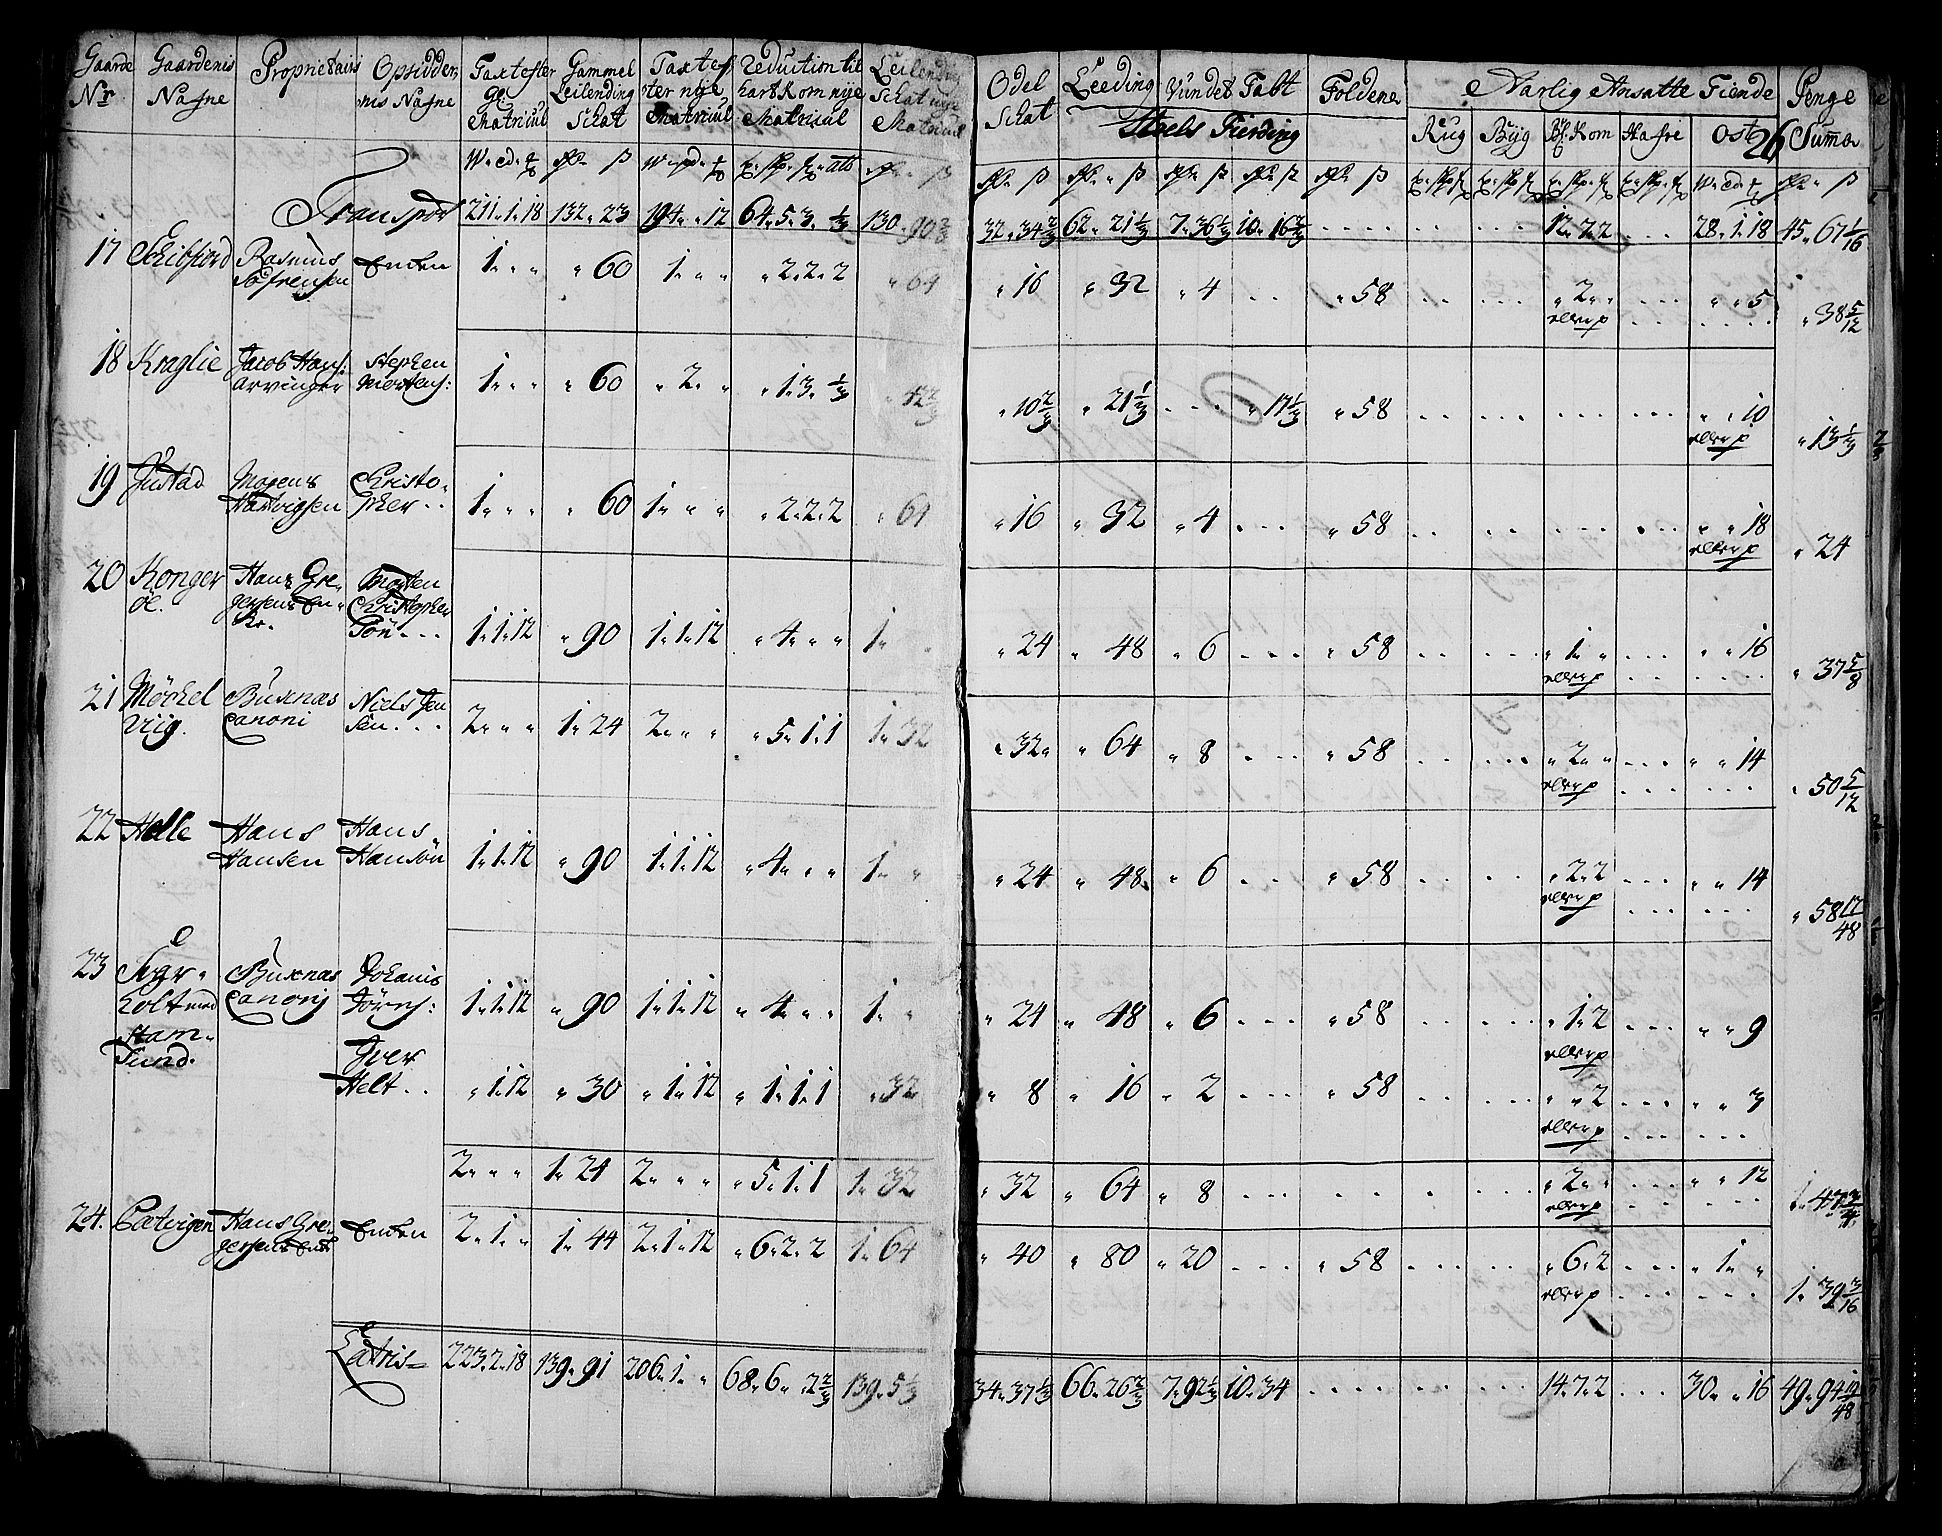 Gaarde Nr | Gaardenis Nafne | Proprietairs | Opsidder, nis Nafne | Taxt efter Gl. Matricul | Gammel Leilending Schat | Taxt efter nÿe Matricul | Reduction til hart Korn nÿe Matricul | Leilending Schat nÿe Matricul | Odel Schat | Leeding | Vundet | Tabt | Foldene | Aarlig Ansatte Tiende | Penge
Stoels Fierding | Rüg | Bÿg | Bl: Korn | Hafre | Ost | 26 | Suma
Transport | 211. 1. 18 | 132. 23 | 194. . 12 | 64. 5. 3. 1/3 | 130. 90 2/3 | 32. 34 2/3 | 62. 21 1/3 | 7. 36 1/3 | 10. 16 2/3 | 12. 7. 2 | 28. 1. 18 | 45. 67 1/16
17 | Schibfiord | Rasmus Tostrensen | Enken | 1. . . | . 60 | 1. . . | . 2. 2. 2 | . 64 | . 16 | . 32 | . 4 | . . | . 58 | . 2. . | . . 5 | . 38 5/12
18 | Kraglie | Jacob Hans: arvinger | Stephen Mortens: | 1. . . | . 60 | . 2. . | . 1. 3. 1/3 | . 42 2/3 | . 10 2/3 | . 21 1/3 | . . . | . 17 1/3 | . 58 | . . 10 | . 13 1/3
19 | Justad | Mogens Hartvigsen | Christopher . . | 1. . . | . 60 | 1. . . | . 2. 2. 2 | . 64 | . 16 | . 32 | . 4 | . . . | . 58 | . . 18 | . 24
20 | Konger öe. | Hans Gregersens Enke. | Morten Christopher Sön. . . | 1. 1. 12 | . 90 | 1. 1. 12 | . 4. . . | 1. . | . 24 | . 48 | . 6 | . . . | . 58 | . 1. . | . . 16 | . 37 5/8
21 | Mörkel Vig. | Buxnæs Canoni | Niels Jensen. . . | 2. . . | 1. 24 | 2. . . | . 5. 1. 1 | 1. 32 | . 32. | . 64 | . 8 | . . . | . 58 | . 2. . | . . 14 | . 50 5/12
22 | Helle | Hans Hansen | Hans Hansön | 1. 1. 12 | . 90 | 1. 1. 12 | . 4. . . | 1. . | . 24 | . 48. | . 6 | . . | . 58 | . 2. 2 | . . 14 | . 58 17/48
23 | Segerholt med Ham Sund. | Buxnæs Canonj | Johanis Jörns: | 1. 1. 12 | . 90 | 1. 1. 12 | . 4. . . | 1. . | . 24 | . 48 | . 6 | . . . | . 58 | . 1. 2 | . . 9
Iver Helt . . | . 1. 12 | . 30 | . 1. 12 | . 1. 1. 1 | . 32 | . 8 | . 16 | . 2 | . . . | . 58 | . . 2 | . . 3
2. . . | 1. 24 | 2. . . | . 5. 1. 1 | 1. 32 | . 32 | . 64 | . 8 | . . . | . 2. . | . . 12 | 1. 47 3/4
24. | Catvigen | Hans Gregersens Enke | Enken | 2. 1. . | 1. 44 | 2. 1. 12 | . 6. 2. 2 | 1. 64 | . 40 | . 80 | . 20 | . . . | . 58 | . 6. 2 | . 1. . | 1. 39 3/16
Latris | 223. 2. 18 | 139. 91 | 206. 1. . | 68. 6. . 2 2/3 | 139. 5 1/3 | 34. 37 1/3 | 66. 26 2/3 | 7. 92 1/3 | 10. 34 | 14. 7. 2 | 30. . 16 | 49. 94 19/48